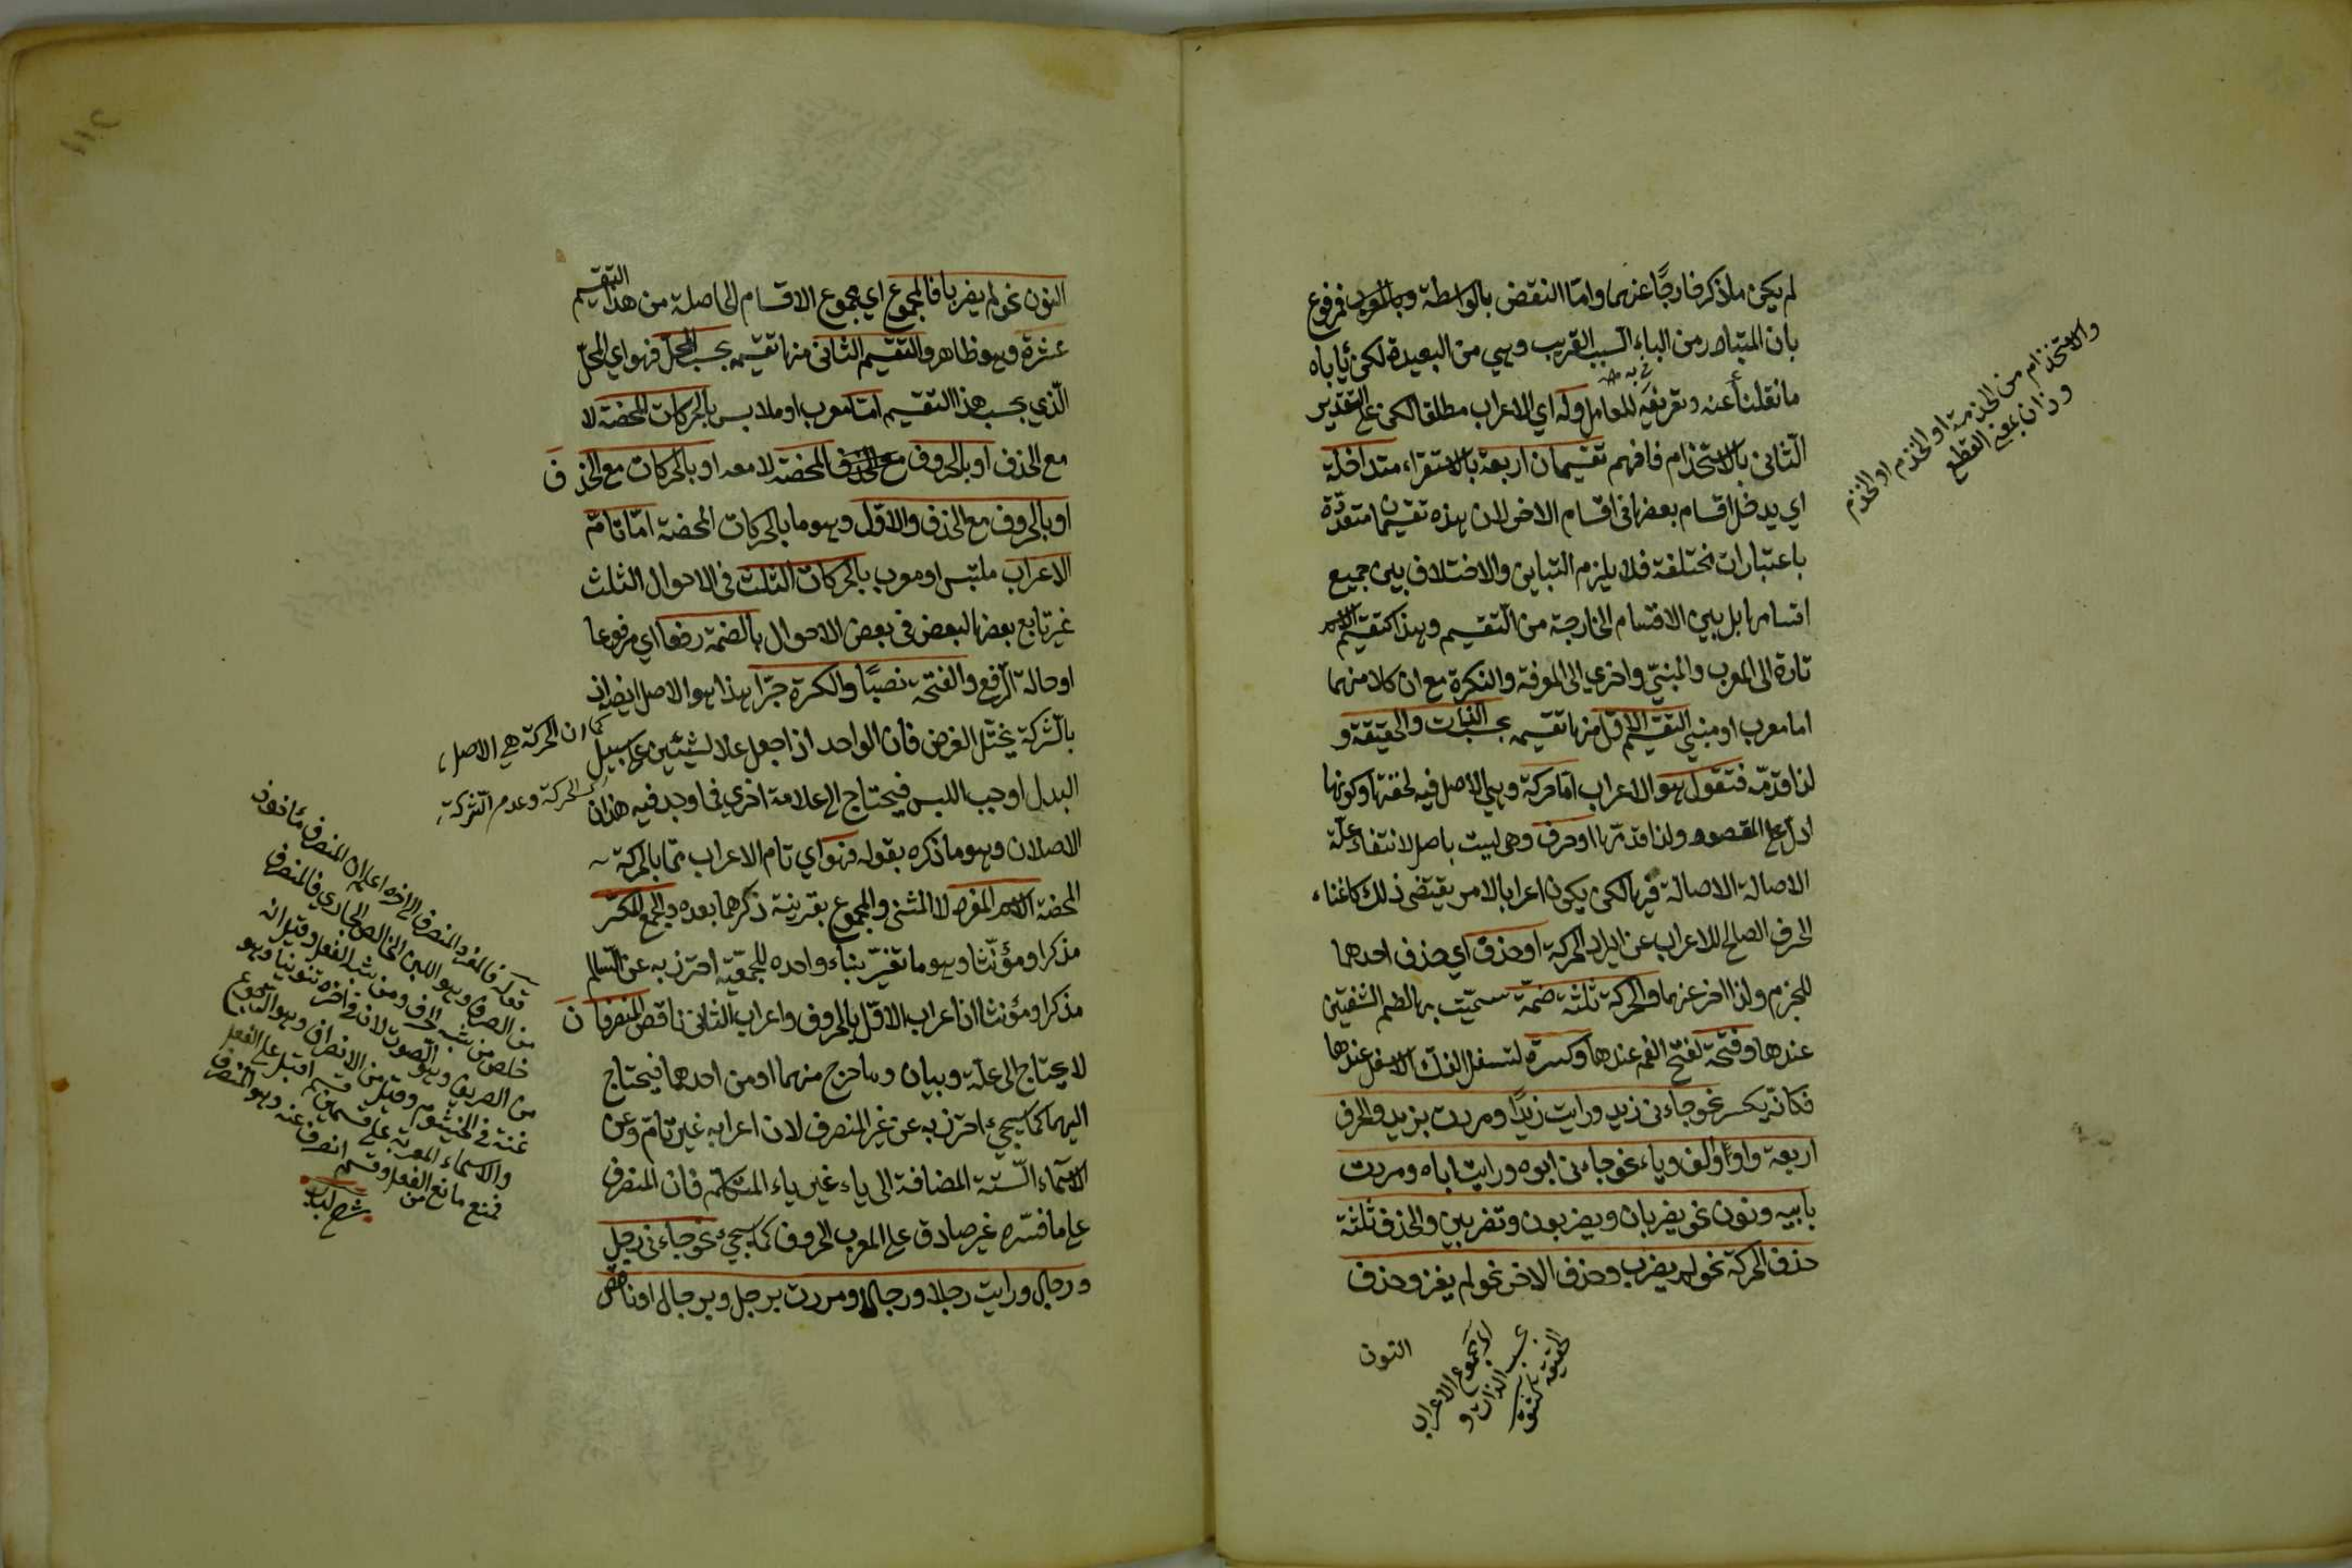 لم يكن ما ذكر خارجًا عنهما واما النقض بالواسطة وبالمورد فمرفوع
بان المتبادر من الباء السبب القريب وهي من البعيدة لكن يأباه
ما نقلنا عنه وتعريفه للعامل وله اي الاعراب مطلقا لكن على التقدير
الثاني بالاستخذام فافهم تقسيمان اربعة بالاستقراء متداخلة
اي يدخل اقسام بعضها في اقسام الاخر لان هذه تقسيمات متعددة
باعتبارات مختلفة فلا يلزم التباين والاختلاف بين جميع
اقسامها بل بين الاقسام الخارجة من التقسيم وهذا كتقسيم الاسم
تارة الى المعرب والمبني واخرى الى المعرفة والنكرة مع ان كلا منهما
اما معرب او مبني التقسيم الاول منها تقسيمه بحسب الذات والحقيقة و
لذا قدمه فتقول هو الاعراب اما حركة وهي الاصل فيه لخفتها وكونها
ادل على المقصود ولذا قدمها او حرف وهي ليست باصل لانتفاء علة
الاصالة الاصالة فيها لكن يكون اعرابا لامر يقتضى ذلك كاغناء
الحرف الصالح للاعراب عن ايراد الحركة او حذف اي حذف احدهما
للجزم ولذا اخر عنهما والحركة ثلثة ضمة سميت بها لضم الشفتين
عندها وفتحة لفتح الفم عندها وكسرة لتسفل الفك الاسفل عندها
فكانه يكسر نحو جاءني زيد ورايت زيدًا ومررت بزيد والحرف
اربعة واو والف وياء نحو جاءني ابوه ورايت اباه ومررت
بابيه ونون نحو يضربان ويضربون وتضربين والحذف ثلثة
حذف الحركة نحو لم يضرب وحذف الاخر نحو لم يغز وحذف
النون
والاستخذام من الخذمة او الخذم او الخذم
وزان بمعنى القطع
اي مجموع الاعراب
بحسب الذات و
الحقيقة
النون نحو لم يضربا فالمجموع اي مجموع الاقسام الحاصلة من هذا التقسيم
عشرة وهو ظاهر والتقسيم الثاني منها تقسيمه بحسب المحل فهو اي المحل
الذي بحسب هذا التقسيم اما معرب او ملابس بالحركات المحضة لا
مع الحذف او بالحروف المحضة لا معه او بالحركات مع الحذف
او بالحروف مع الحذف والاول وهو ما بالحركات المحضة اما تام
الاعراب ملتبس او معرب بالحركات الثلث في الاحوال الثلث
غير تابع بعضها لبعض في بعض الاحوال بالضمة رفعا اي مرفوعا
او حالة الرفع والفتحة نصبًا والكسرة جرًا هذا هو الاصل ايضا اذ
بالشركة يختل الغرض فان الواحد اذا جعل علامة لشيئين على سبيل
البدل اوجب اللبس فيحتاج الى علامة اخرى فما وجد فيه هذان
الاصلان وهو ما ذكره بقوله فهو اي تام الاعراب مما بالحركة
المحضة الاسم المفرد لا المثنى والمجموع بقرينة ذكرهما بعده والجمع المكسر
مذكرا ومؤنثا وهو ما تغير بناء واحده للجمعية احترز به عن السالم
مذكرا ومؤنثا اذ اعراب الاول بالحروف واعراب الثاني ناقص المنصرفان
لا يحتاج الى علة وبيان وما خرج منهما او من احدهما فيحتاج
اليهما كما سيجيء احترز به عن غير المنصرف لان اعرابه غير تام وعن
الاسماء الستة المضافة الى ياء غير ياء المتكلم فان المنصرف
على ما فسره غير صادق على المعرب الحروف كما سيجيء نحو جاءني رجل
ورجال ورايت رجلا ورجالا ومررت برجل وبرجال او ناقص
كما ان الحركة هي الاصل
الحركة وعدم الشركة
قوله فالمفرد المنصرف الى اخره اعلم ان المنصرف مأخوذ
من الصرف وهو اللبن الخالص الجاري فالمنصرف
خلص من شبه الحرف ومن شبه الفعل وقيل انه
من الصريف وهو الصوت لان في اخره تنوينا وهو
غنة في الخيشوم وقيل من الانصراف وهو الرجوع
والاسماء المعربة على قسمين قسم اقبل على الفعل
فمنع ما منع الفعل وقسم انصرف عنه وهو المنصرف
شرح لباب